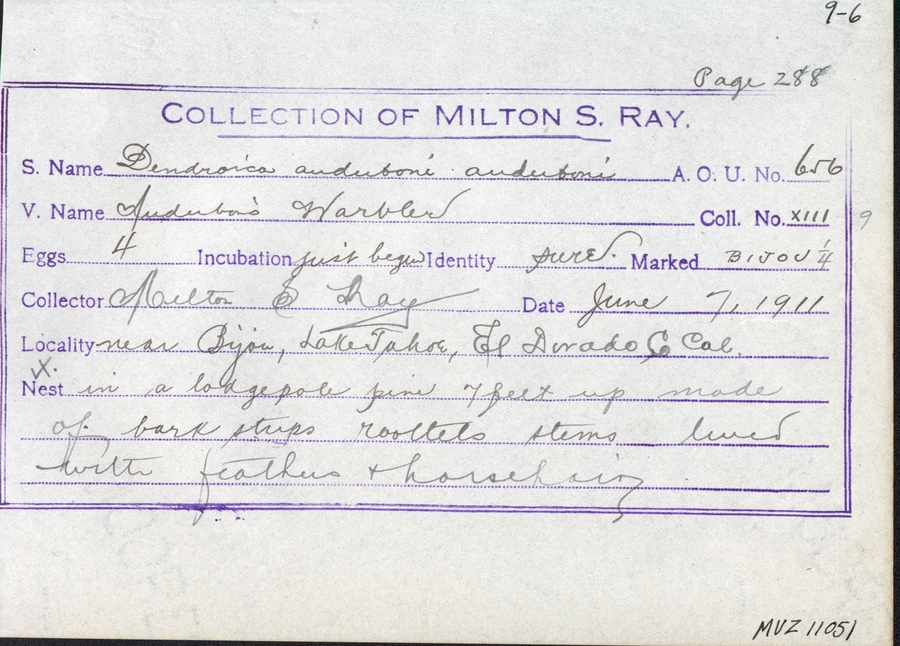 9-6
Page 288
COLLECTION OF MILTON S. RAY.
S. Name Dendroica auduboni auduboni A. O. U. No. 656
V. Name Audubon's Warbler Coll. No. XIII 9
Eggs 4 Incubation just begun Identity sure. Marked BIJOU 1/4
Collector Milton S Ray Date June 7, 1911
Locality near Bijou, Lake Tahoe, El Dorado Co Cal.
Nest in a lodgepole pine 7 feet up made
of bark strips rootlets stems lined
with feathers + horsehair
MVZ 11051